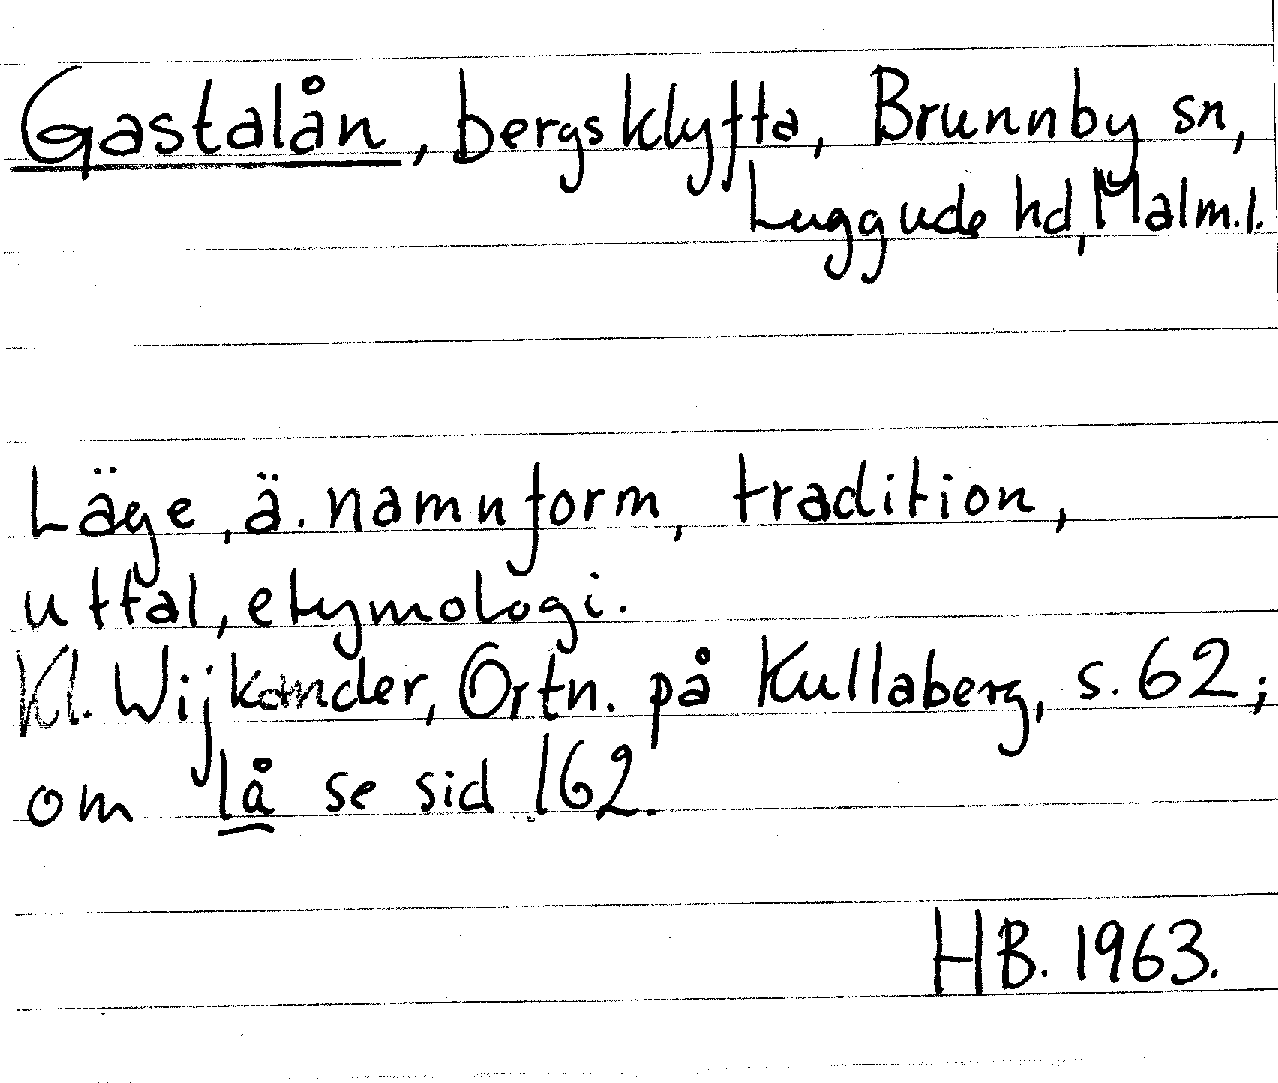 Gastalån, bergsklyfta, Brunnby sn,
Luggude hd, Malm.l.
Läge, ä. namnform, tradition,
uttal, etymologi.
Kl. Wijkander, Ortn. på Kullaberg, s. 62;
om lå se sid 162.
HB. 1963.